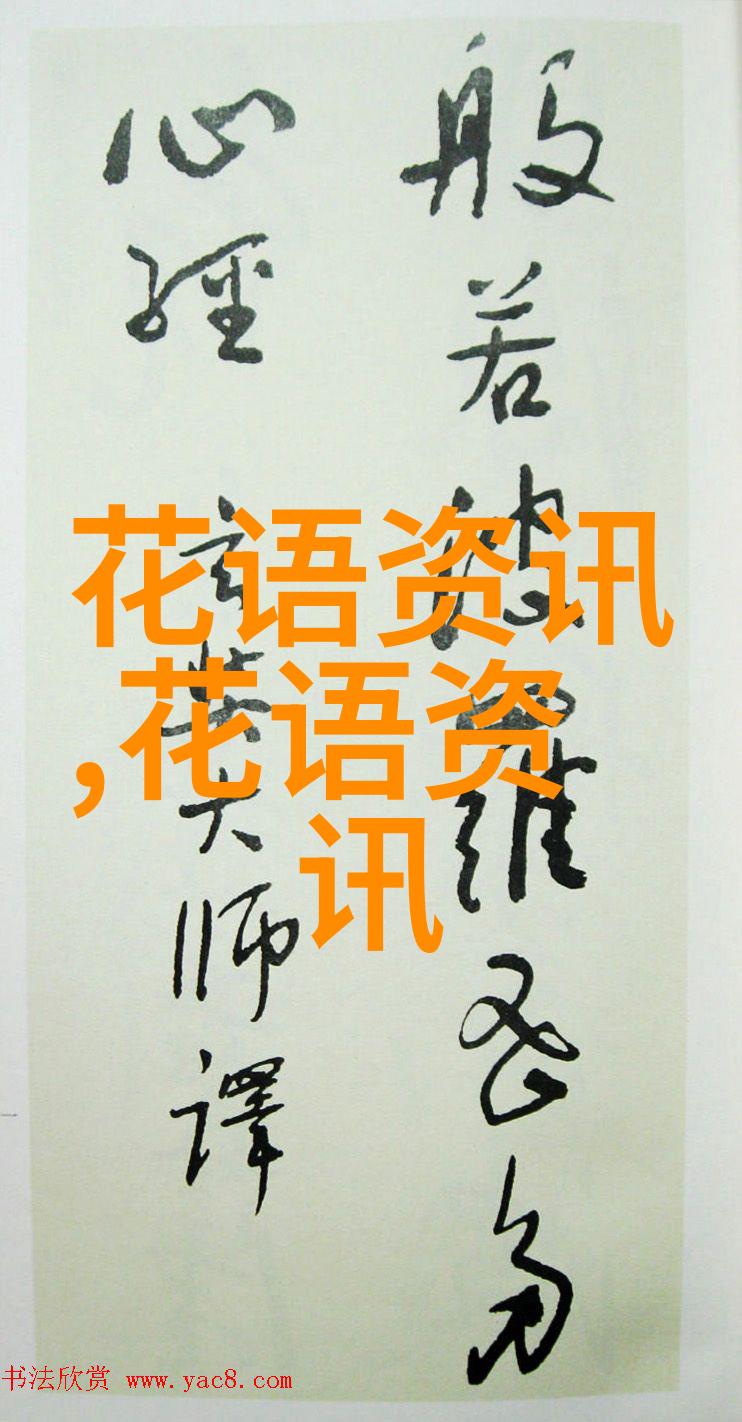 般若波羅蜜多
心經 玄奘大師譯
花语资讯
,花语资
讯
书法欣赏 www.yac8.com